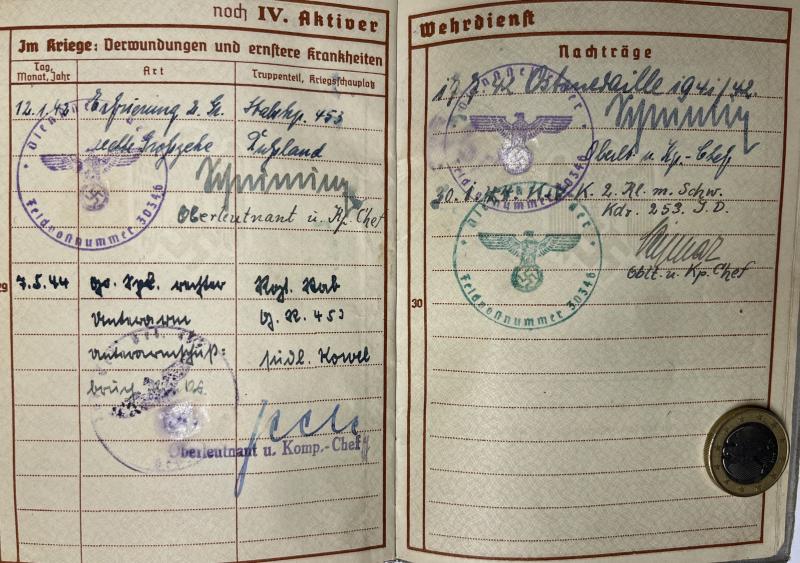 noch IV. Aktiver
Im Kriege: Verwundungen und ernstere Krankheiten
Tag, Monat, Jahr
Art
Truppenteil, Kriegsschauplatz
12.1.42 Erfrierung 2. Gr. Stabskp. 453
rechte Großzehe Rußland
Oberleutnant u. Kp. Chef
Feldpostnummer 30346
29
7.5.44 rechter Rgt. Stab
Unterarm G. R. 453
Unterarmschuß- südl. Kowel
bruch
Oberleutnant u. Komp.-Chef
Wehrdienst
Nachträge
42 Ostmedaille 1941/42.
Oblt. u. Kp. Chef
Feldpostnummer 30346
K. 2. Kl. m. Schw.
Kdr. 253. I.D.
Oblt. u. Kp. Chef
30
Feldpostnummer 30346